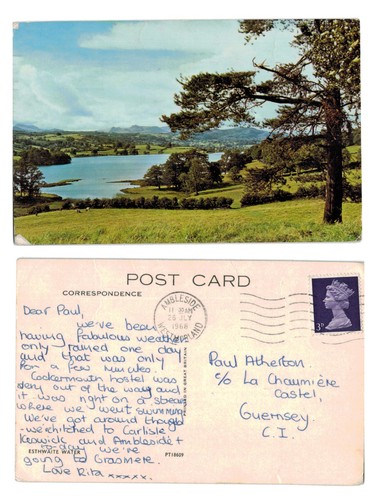 POST CARD
CORRESPONDENCE
Dear Paul,
we've been
having fabulous weather
only rained one day
and that was only
for a few minutes.
Cockermouth hostel was
way out of the way and
it was right on a
where we went swimming
We've got around though
- we hitched to Carlisle
Keswick and Ambleside +
to-day we're
going to Grasmere.
Love Rita xxxxx.
ESTHWAITE WATER
PT18609
PRINTED IN GREAT BRITAIN
AMBLESIDE
1968
WESTMORLAND
3D
Paul Atherton
c/o La Chaumière
Castel,
Guernsey
C.I.